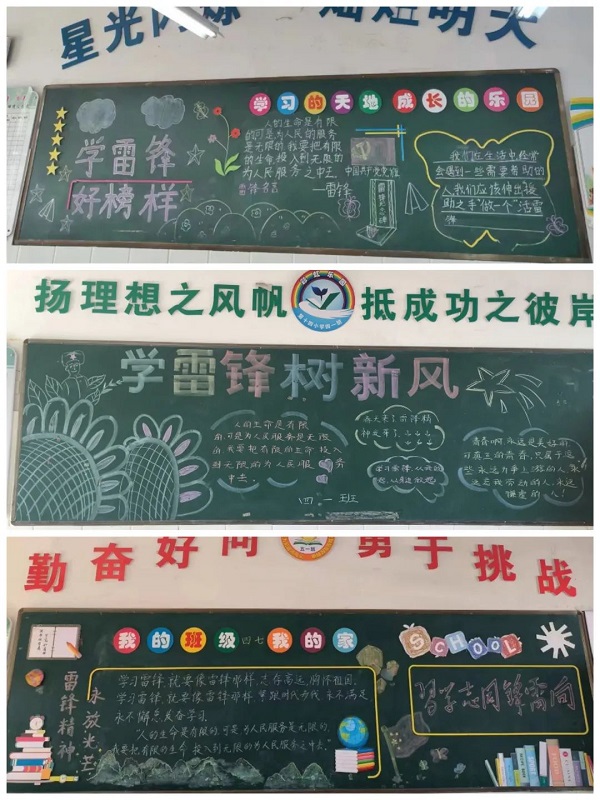 星光闪烁 灿烂明天
学习的天地 成长的乐园
学雷锋
好榜样
人的生命是有限
的可是为人民的服务
是无限的我要把有限
的生命投入到无限的
为人民服务之中去
雷锋名言
——雷锋
中国共产党党旗
我们在生活中经常
会遇到一些需要帮助的
人我们应该伸出援
助之手"做一个"活雷
锋
扬理想之风帆 抵成功之彼岸
第十四小学四一班
学雷锋树新风
人的生命是有限
的可是为人民服务是无限
的我要把有限的生命投入
到无限的为人民服务
中去
春天来了雷锋精
神又来了
四.一班
青春啊永远是美好的
可真正的青春,只属于这
些永远力争上游的人,
永远忘我劳动的人,永远
谦虚的人!
勤奋好问 勇于挑战
五一班
我的班级四七我的家
SCHOOL
雷锋精神
永放光芒
学习雷锋,就要像雷锋那样,志存高远,胸怀祖国,
学习雷锋,就要像雷锋那样,紧跟时代步伐,永不满足,
永不懈怠,发奋学习。
"人的生命是有限的,可是为人民服务是无限的,
我要把有限的生命,投入到无限的为人民服务之中去。"
习学志同锋雷向